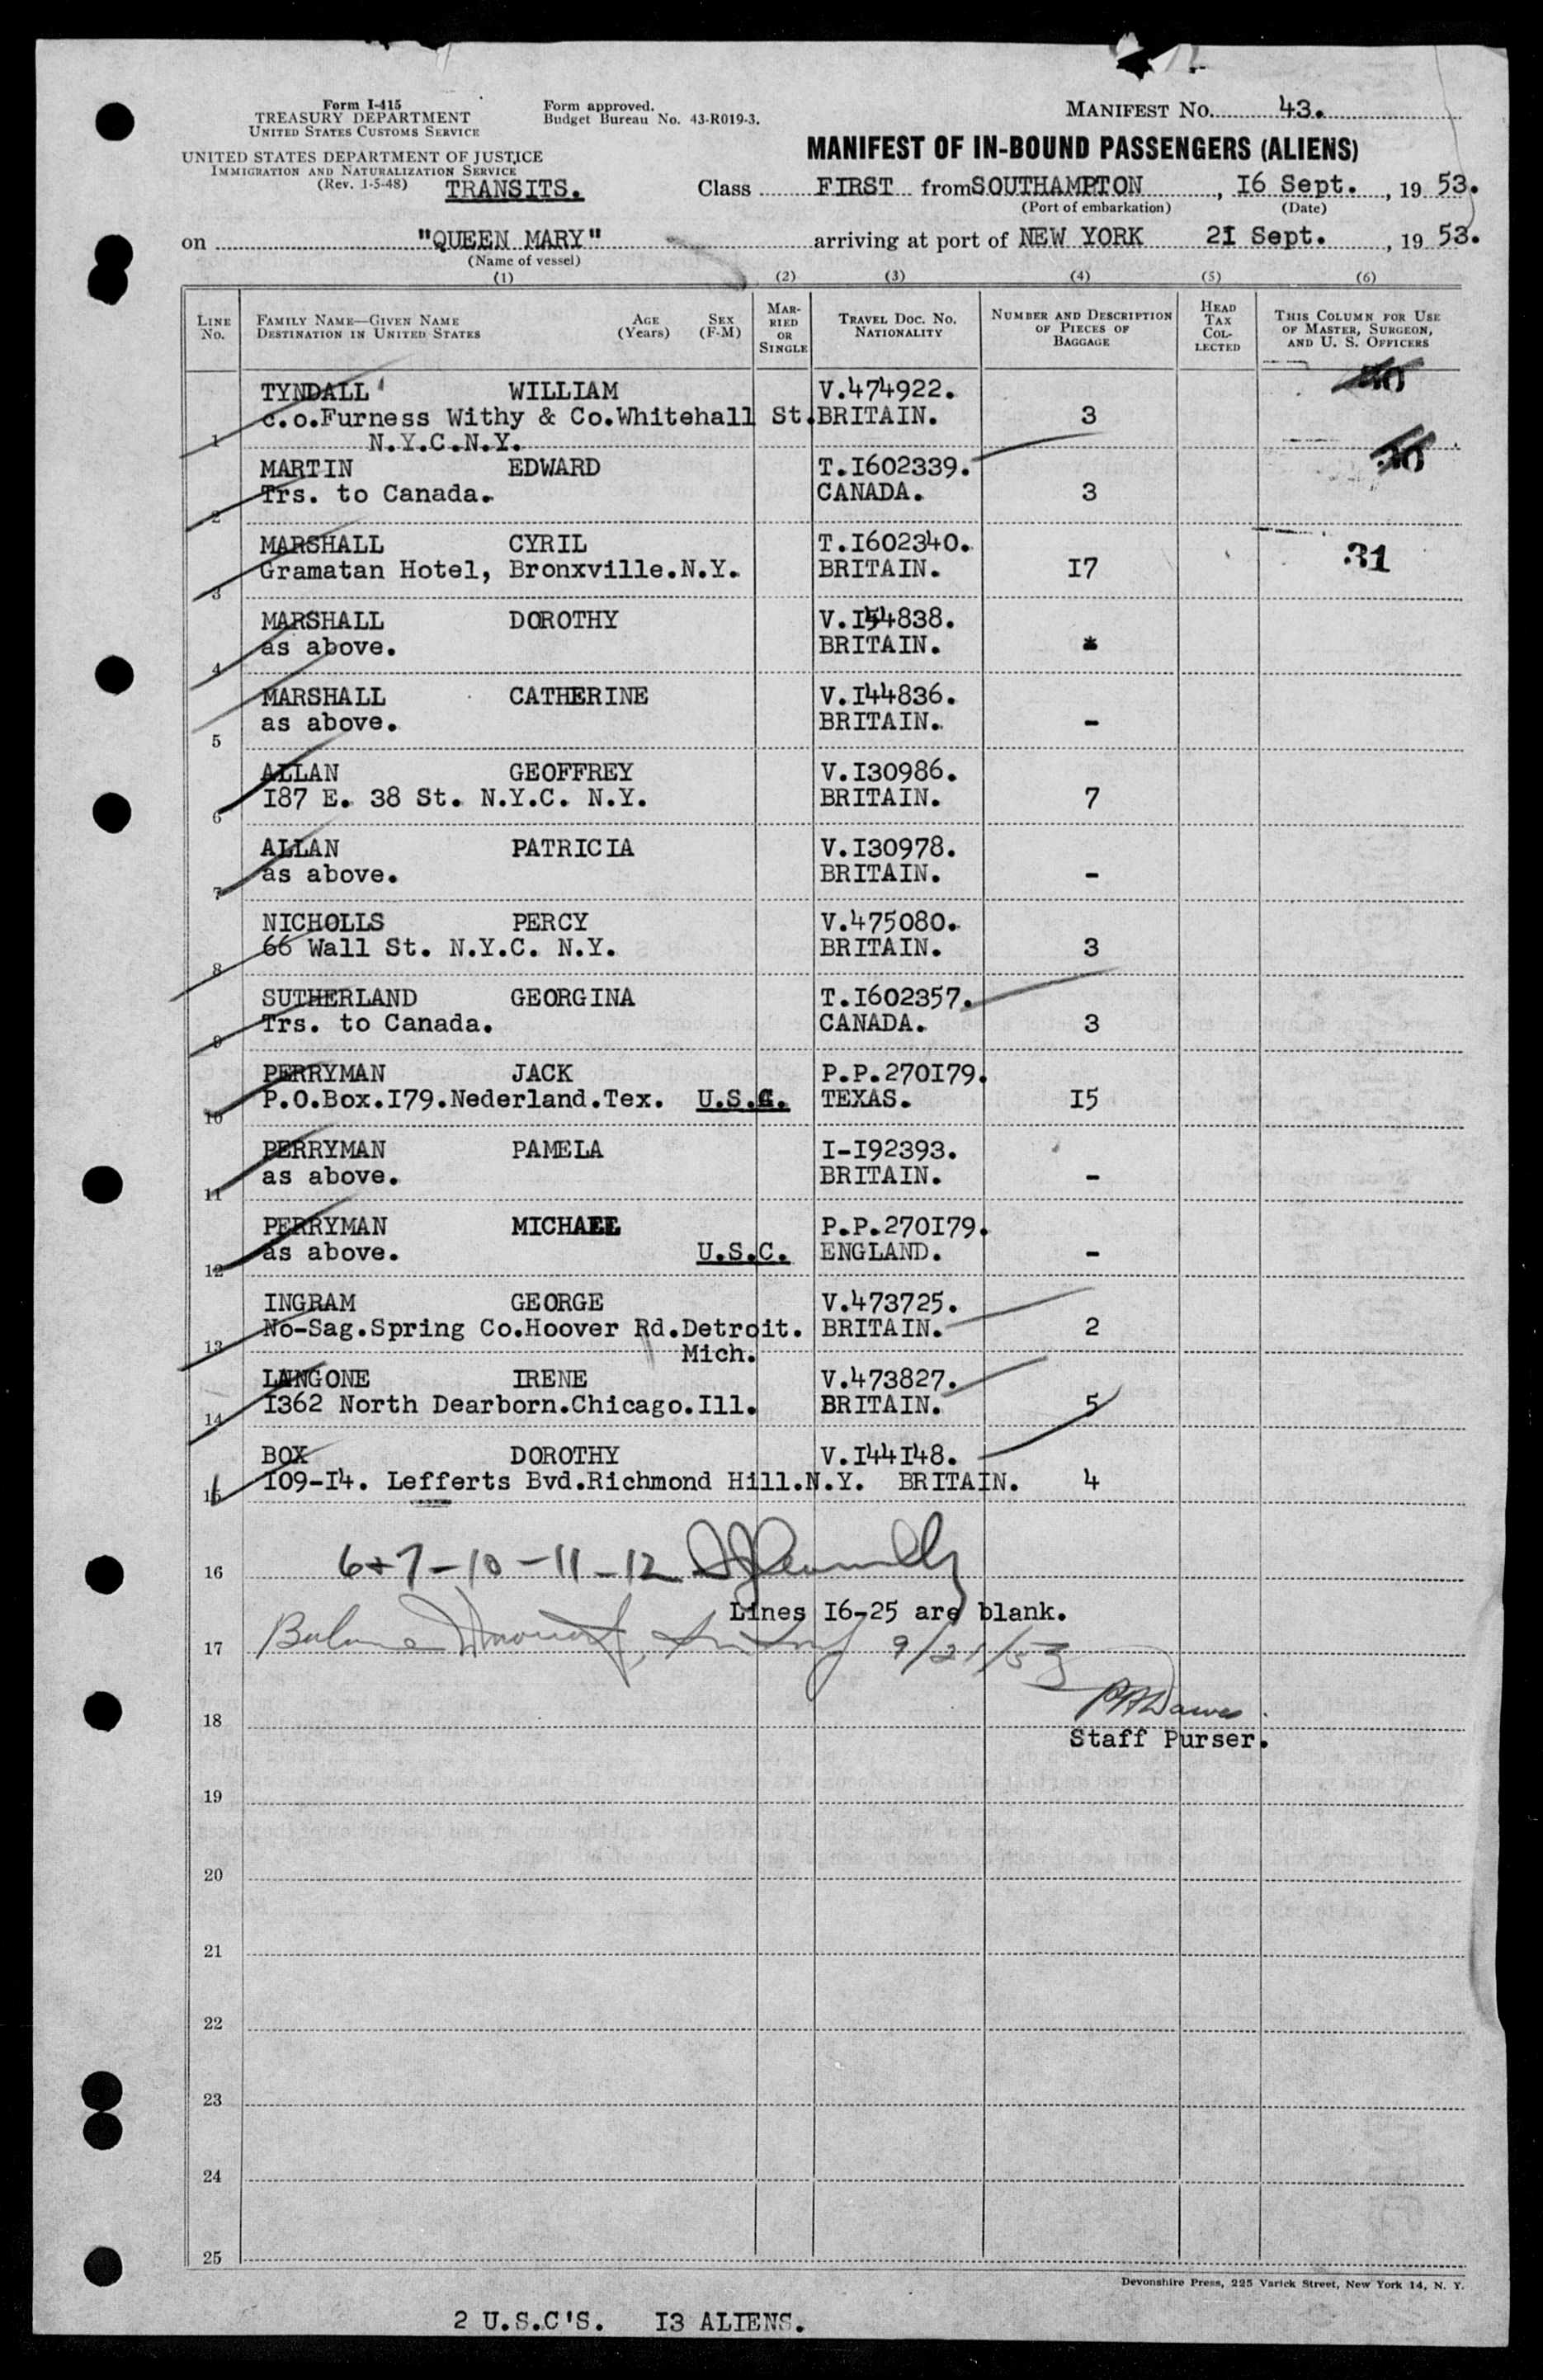 Form I-415
TREASURY DEPARTMENT
UNITED STATES CUSTOMS SERVICE
Form approved.
Budget Bureau No. 43-R019-3.
MANIFEST NO. 43.
UNITED STATES DEPARTMENT OF JUSTICE
IMMIGRATION AND NATURALIZATION SERVICE
(Rev. 1-5-48) TRANSITS.
MANIFEST OF IN-BOUND PASSENGERS (ALIENS)
Class FIRST from SOUTHAMPTON, I6 Sept., 19 53.
(Port of embarkation) (Date)
on "QUEEN MARY" arriving at port of NEW YORK 2I Sept., 19 53.
(Name of vessel)
(1) (2) (3) (4) (5) (6)
LINE NO. FAMILY NAME—GIVEN NAME DESTINATION IN UNITED STATES AGE (Years) SEX (F-M) MARRIED OR SINGLE TRAVEL DOC. NO. NATIONALITY NUMBER AND DESCRIPTION OF PIECES OF BAGGAGE HEAD TAX COLLECTED THIS COLUMN FOR USE OF MASTER, SURGEON, AND U. S. OFFICERS
TYNDALL WILLIAM V.474922.
1 c.o.Furness Withy & Co.Whitehall St. BRITAIN. 3
N.Y.C.N.Y.
MARTIN EDWARD T.I602339.
2 Trs. to Canada. CANADA. 3
MARSHALL CYRIL T.I602340. 31
3 Gramatan Hotel, Bronxville.N.Y. BRITAIN. I7
MARSHALL DOROTHY V.I54838.
4 as above. BRITAIN. *
MARSHALL CATHERINE V.I44836.
5 as above. BRITAIN. -
ALLAN GEOFFREY V.I30986.
6 I87 E. 38 St. N.Y.C. N.Y. BRITAIN. 7
ALLAN PATRICIA V.I30978.
7 as above. BRITAIN. -
NICHOLLS PERCY V.475080.
8 66 Wall St. N.Y.C. N.Y. BRITAIN. 3
SUTHERLAND GEORGINA T.I602357.
9 Trs. to Canada. CANADA. 3
PERRYMAN JACK P.P.270I79.
10 P.O.Box.I79.Nederland.Tex. U.S.C. TEXAS. I5
PERRYMAN PAMELA I-I92393.
11 as above. BRITAIN. -
PERRYMAN MICHAEL P.P.270I79.
12 as above. U.S.C. ENGLAND. -
INGRAM GEORGE V.473725.
13 No-Sag.Spring Co.Hoover Rd.Detroit. BRITAIN. 2
Mich.
LANGONE IRENE V.473827.
14 I362 North Dearborn.Chicago.Ill. BRITAIN. 5
BOX DOROTHY V.I44I48.
15 I09-I4. Lefferts Bvd.Richmond Hill.N.Y. BRITAIN. 4
16 6+7-10-11-12
Lines I6-25 are blank.
17 9/21/53
18
Staff Purser.
19
20
21
22
23
24
25
Devonshire Press, 225 Varick Street, New York 14, N. Y.
2 U.S.C'S. I3 ALIENS.